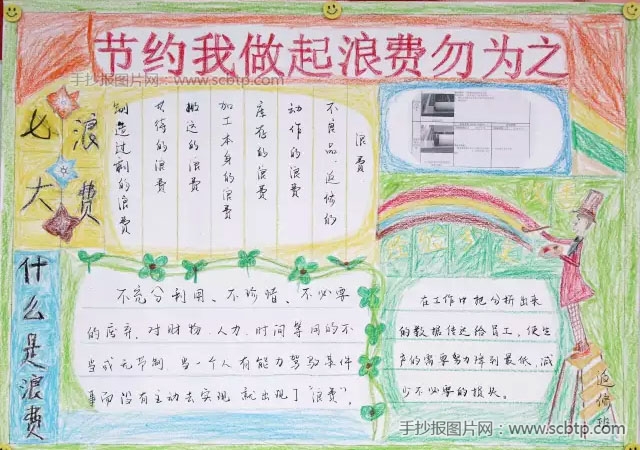 节约我做起浪费勿为之
手抄报图片网:www.scbtp.com
七大
浪费
浪费
不良品、追修的
动作的浪费
库存的浪费
加工本身的浪费
搬运的浪费
等待的浪费
制造过剩的浪费
什么是浪费
不充分利用、不珍惜、不必要
的废弃,对财物、人力、时间等用的不
当或无节制,当一个人有能力驾驭某件
事而没有主动去实现就出现了"浪费"。
在工作中把分析出来
的数据传达给员工,使生
产的需要努力降到最低,减
少不必要的损失。
追修班
手抄报图片网:www.scbtp.com